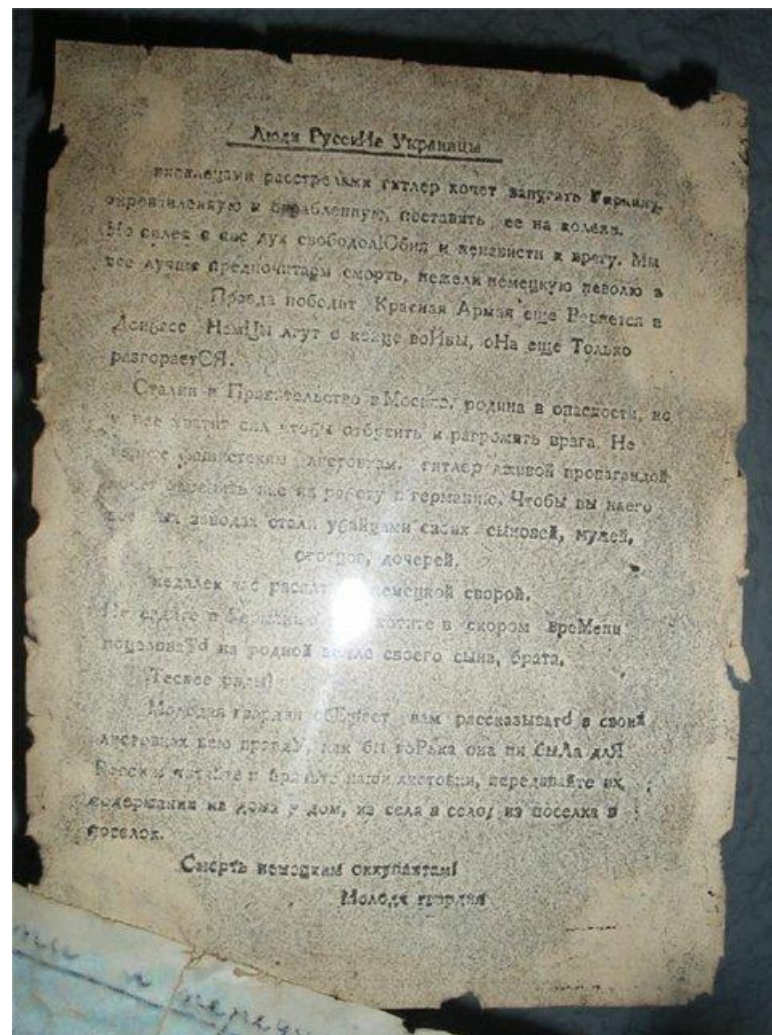 Люди РуссКИе Украинцы
расстрелами гитлер хочет запугать Украину,
и ограбленную, поставить ее на колени.
Но силен в нас дух свободолЮбия и ненависти к врагу. Мы
все лучше предпочитаем смерть, нежели немецкую неволю в
Правда победит Красная Армия еще Вернется в
Донбасс НемЦы лгут о конце воЙны, оНа еще Только
разгораетСЯ.
Сталин и Правительство в Москве. родина в опасности, но
у нас хватит сил чтобы отбросить и разгромить врага. Не
верьте фашистским листовкам. гитлер лживой пропагандой
хочет на работу в германию. Чтобы вы на его
заводах стали убийцами своих сыновей, мужей,
отцов, дочерей.
недалек час немецкой сворой.
Не в в скором вреМени
на родной земле своего сына, брата.
Теснее ряды!
Молодая гвардия вам рассказыватd в своиХ
листовках всю правдУ, как бы гоРька она ни быЛа длЯ
читайте и наши листовки, передавайте их
содержание из дома в дом, из села в село, из поселка в
поселок.
Смерть немецким оккупантам!
Молодя гвардия
и переда